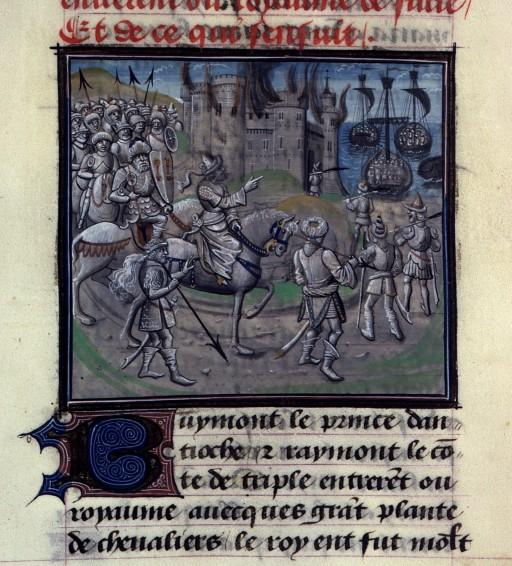 entrerent ou royaume de surie
Et de ce qui sensuit
Buymont le prince dan
tioche ⁊ raymont le cō
te de triple entrerēt ou
royaume auecques grāt plante
de cheualiers le roy ent fut molt